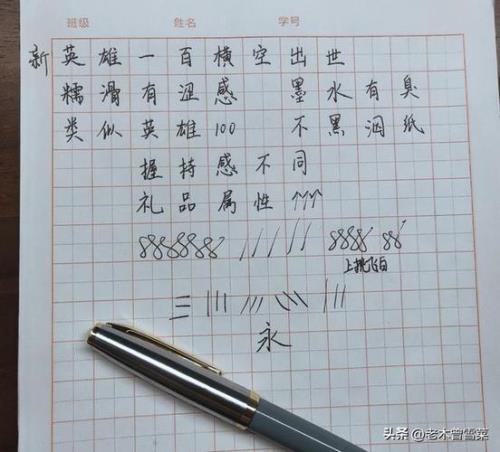 班级 姓名 学号
新英雄一百横空出世
糯滑有涩感 墨水有臭
类似英雄100 不黑洇纸
握持感不同
礼品属性↑↑↑
上挑飞白
永
头条 @老木曾雪菜